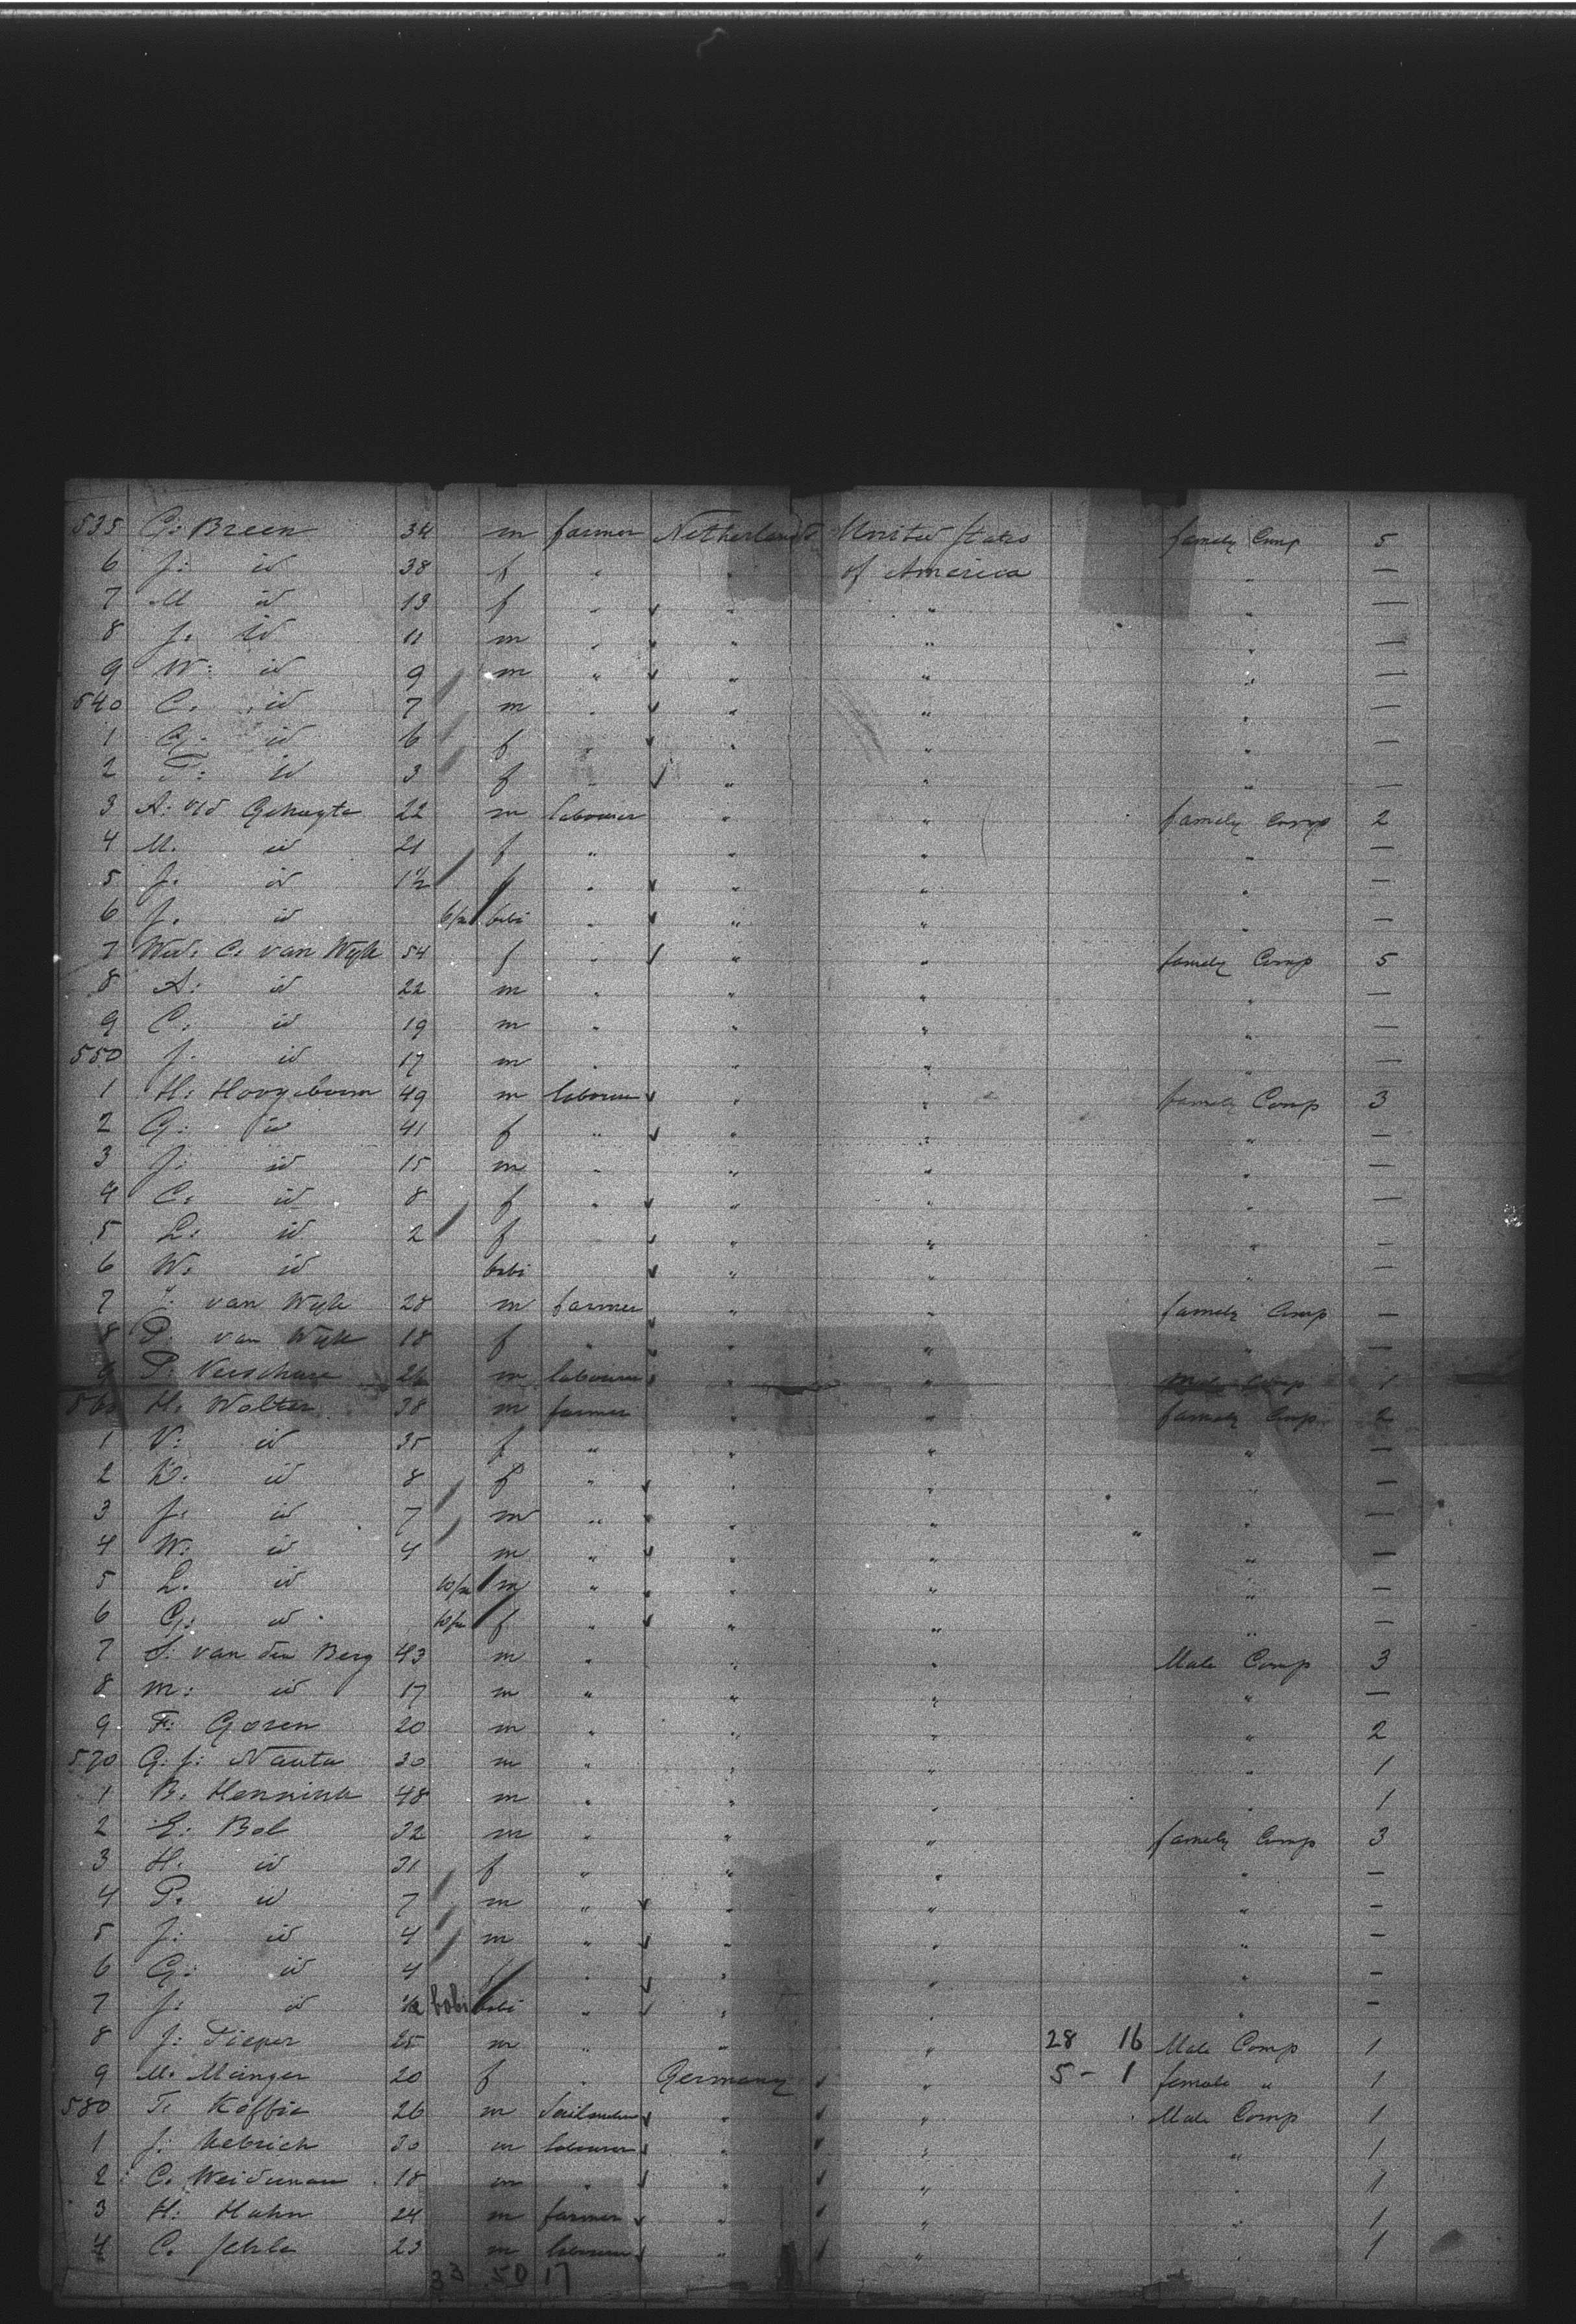 535 G: Breen 34 m farmer Netherlands United States family Comp 5
6 J: id 38 f " " of America " —
7 M id 13 f " " " " —
8 J. id 11 m " " " " —
9 W: id 9 m " " " " —
540 C. id 7 m " " " " —
1 G: id 6 f " " " " —
2 T: id 3 f " " " " —
3 A: v/d 22 m labourer " " family Comp 2
4 M. id 21 f " " " " —
5 J. id 1½ f " " " " —
6 J. id 6/m bebi " " " " —
7 Wed: C. van Wijk 54 f " " " family Comp 5
8 A: id 22 m " " " " —
9 C. id 19 m " " " " —
550 J. id 17 m " " " " —
1 H: Hoogeboom 49 m labourer " " family Comp 3
2 G: id 41 f " " " " —
3 J: id 15 m " " " " —
4 C. id 8 f " " " " —
5 L: id 2 f " " " —
6 W. id bebi " " " —
7 van Wijk 28 m farmer " " family Comp —
8 P: van Wijk 18 f " " " " —
9 P: 26 m labourer " " Male Comp 1
560 H. Wolter 38 m farmer " " family Comp 2
1 V: id 35 f " " " " —
2 id 8 f " " " " —
3 J. id 7 m " " " " —
4 W: id 4 m " " " " —
5 L. id 10/m m " " " " —
6 G: id 10/m f " " " " —
7 S: van den Berg 43 m " " " Male Comp 3
8 m: id 17 m " " " " —
9 F: Goren 20 m " " " " 2
570 G: J: Nauta 30 m " " " " 1
1 B. Hennink 48 m " " " " 1
2 E: Bol 32 m " " " family Comp 3
3 H. id 31 f " " " " —
4 P. id 7 m " " " " —
5 J: id 4 m " " " " —
6 G: id 4 " " " " —
7 J: id bebi " " " " —
8 J: Tieper 25 m " " " 28 16 Male Comp 1
9 M. Mainger 20 f " Germany " 5 - 1 female " 1
580 T. Koffie 26 m " " Male Comp 1
1 J: 30 m labourer " " " 1
2 C. Weidunau 18 m " " " " 1
3 H: Hahn 24 m farmer " " " 1
4 C. Jehle 23 m " " " 1
33 50 17